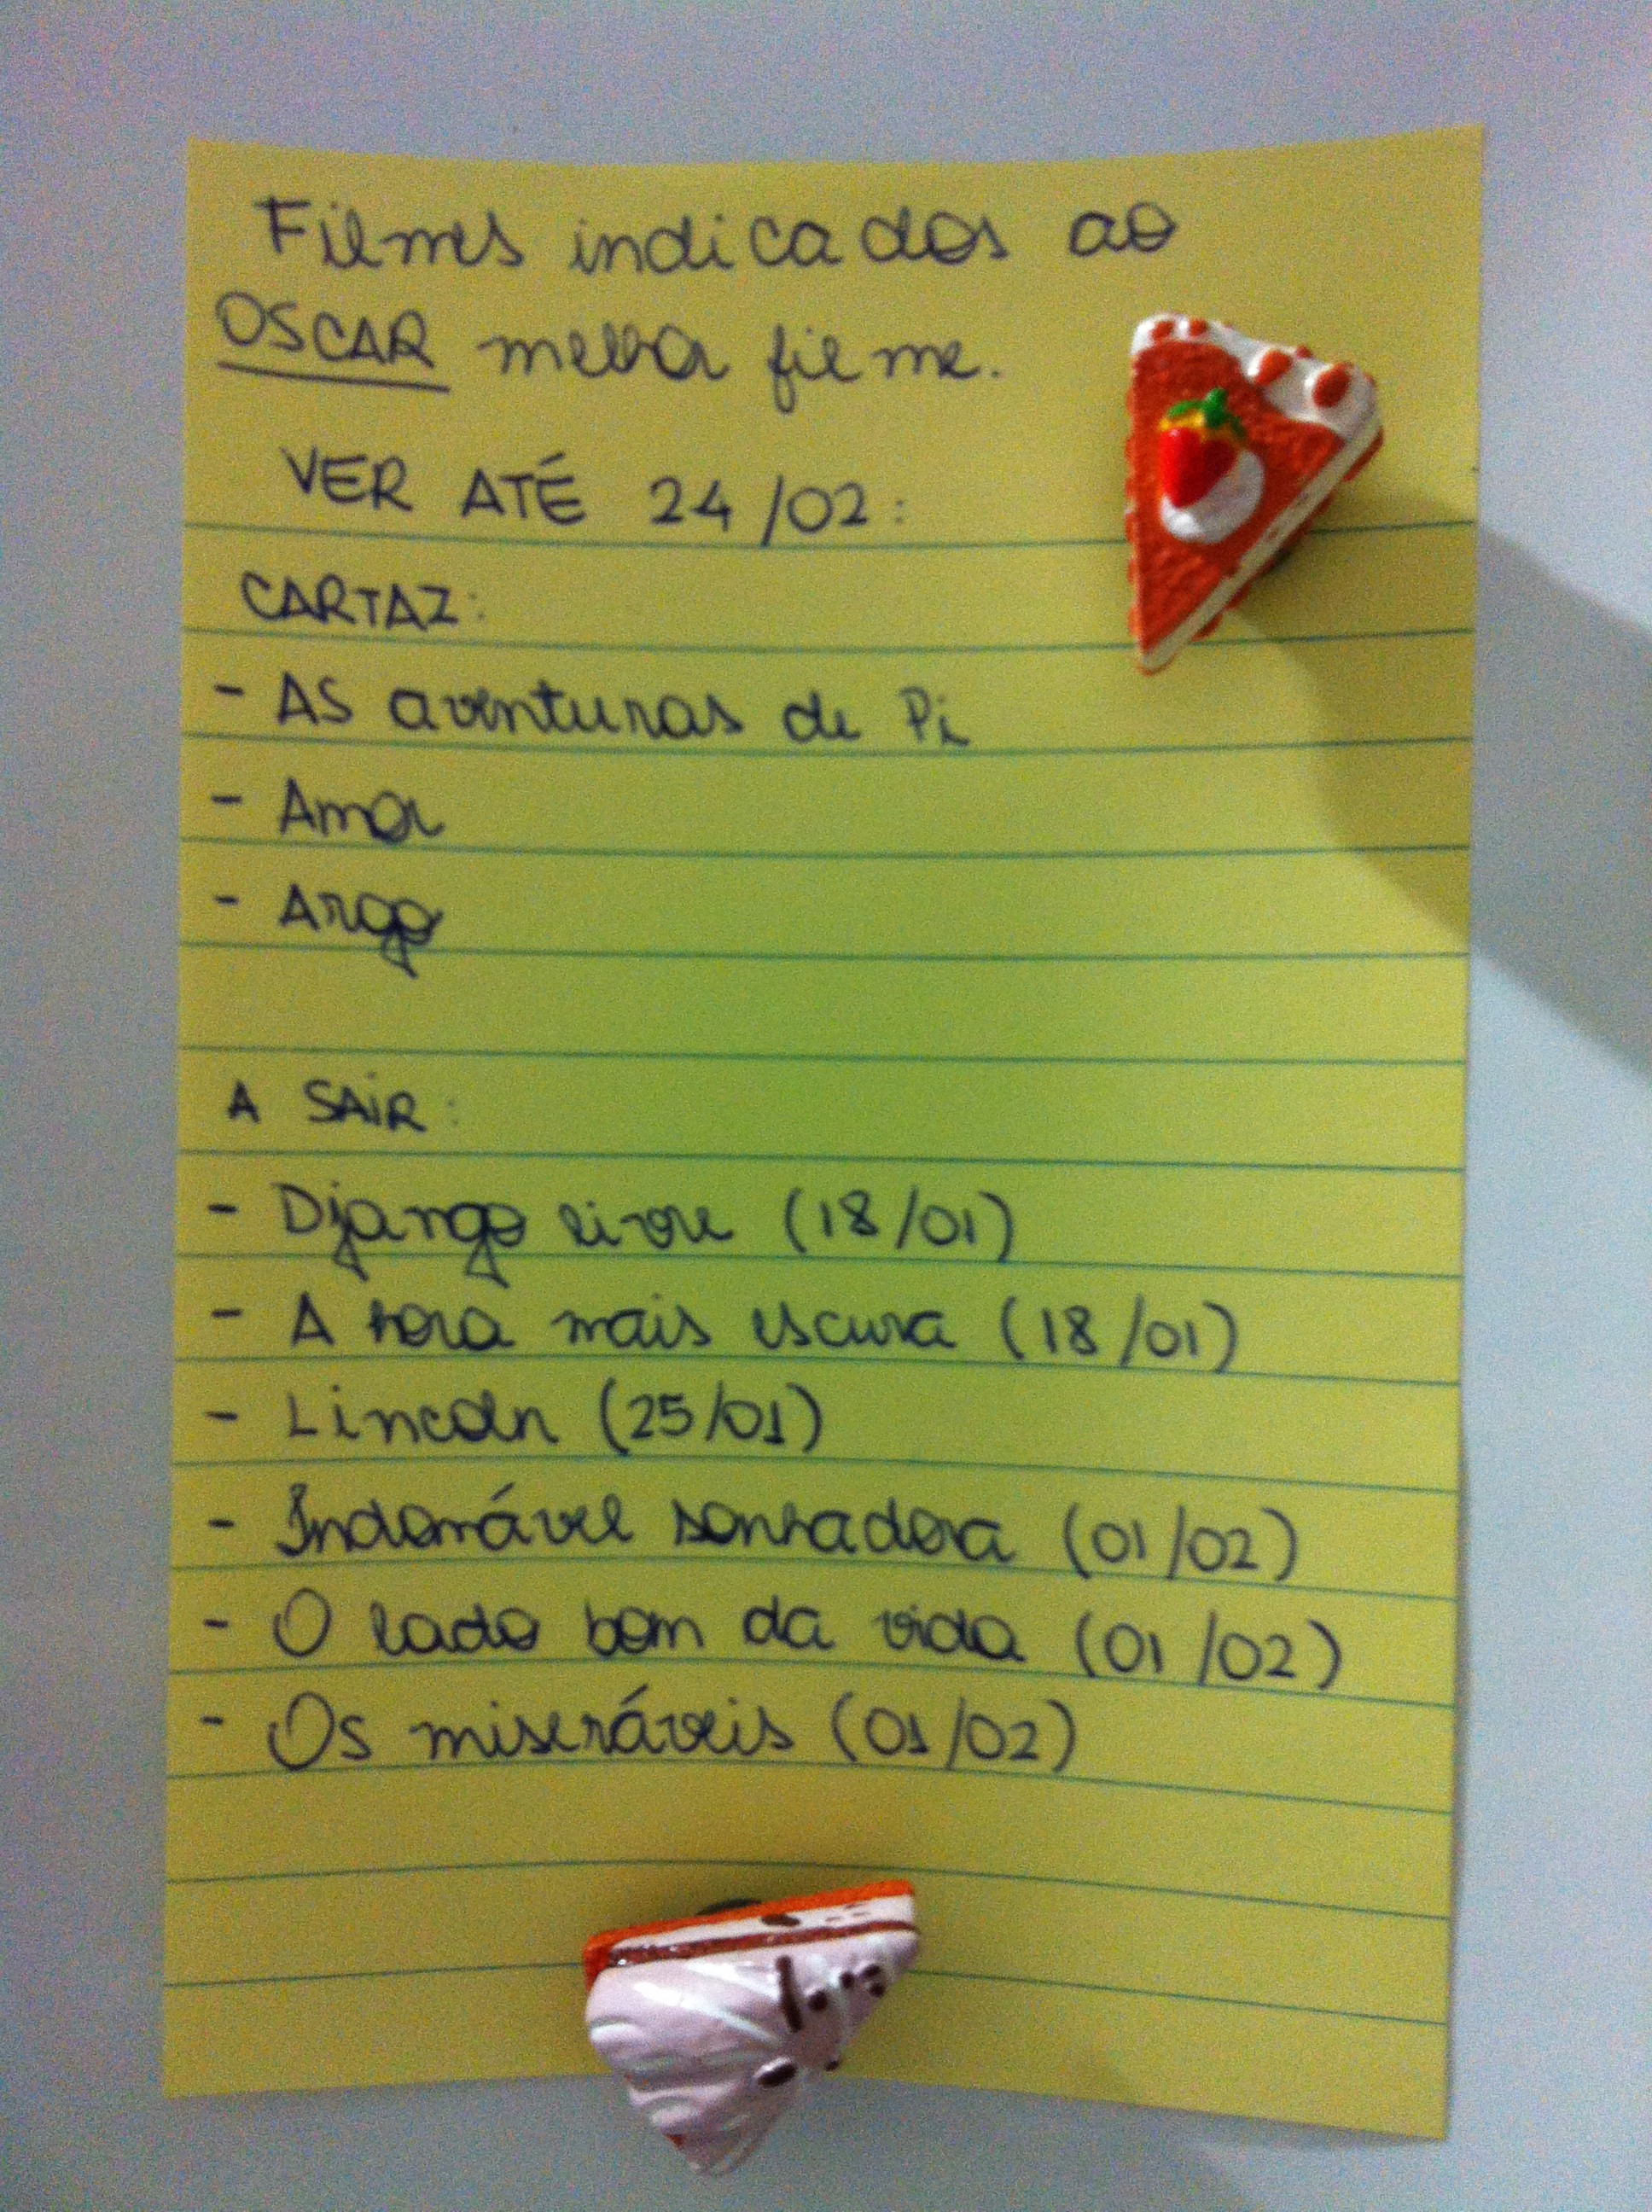 Filmes indicados ao
OSCAR melhor filme.
VER ATÉ 24/02:
CARTAZ:
- AS aventuras de Pi
- Amor
- Argo
A SAIR:
- Django livre (18/01)
- A hora mais escura (18/01)
- Lincoln (25/01)
- Indomável sonhadora (01/02)
- O lado bom da vida (01/02)
- Os miseráveis (01/02)